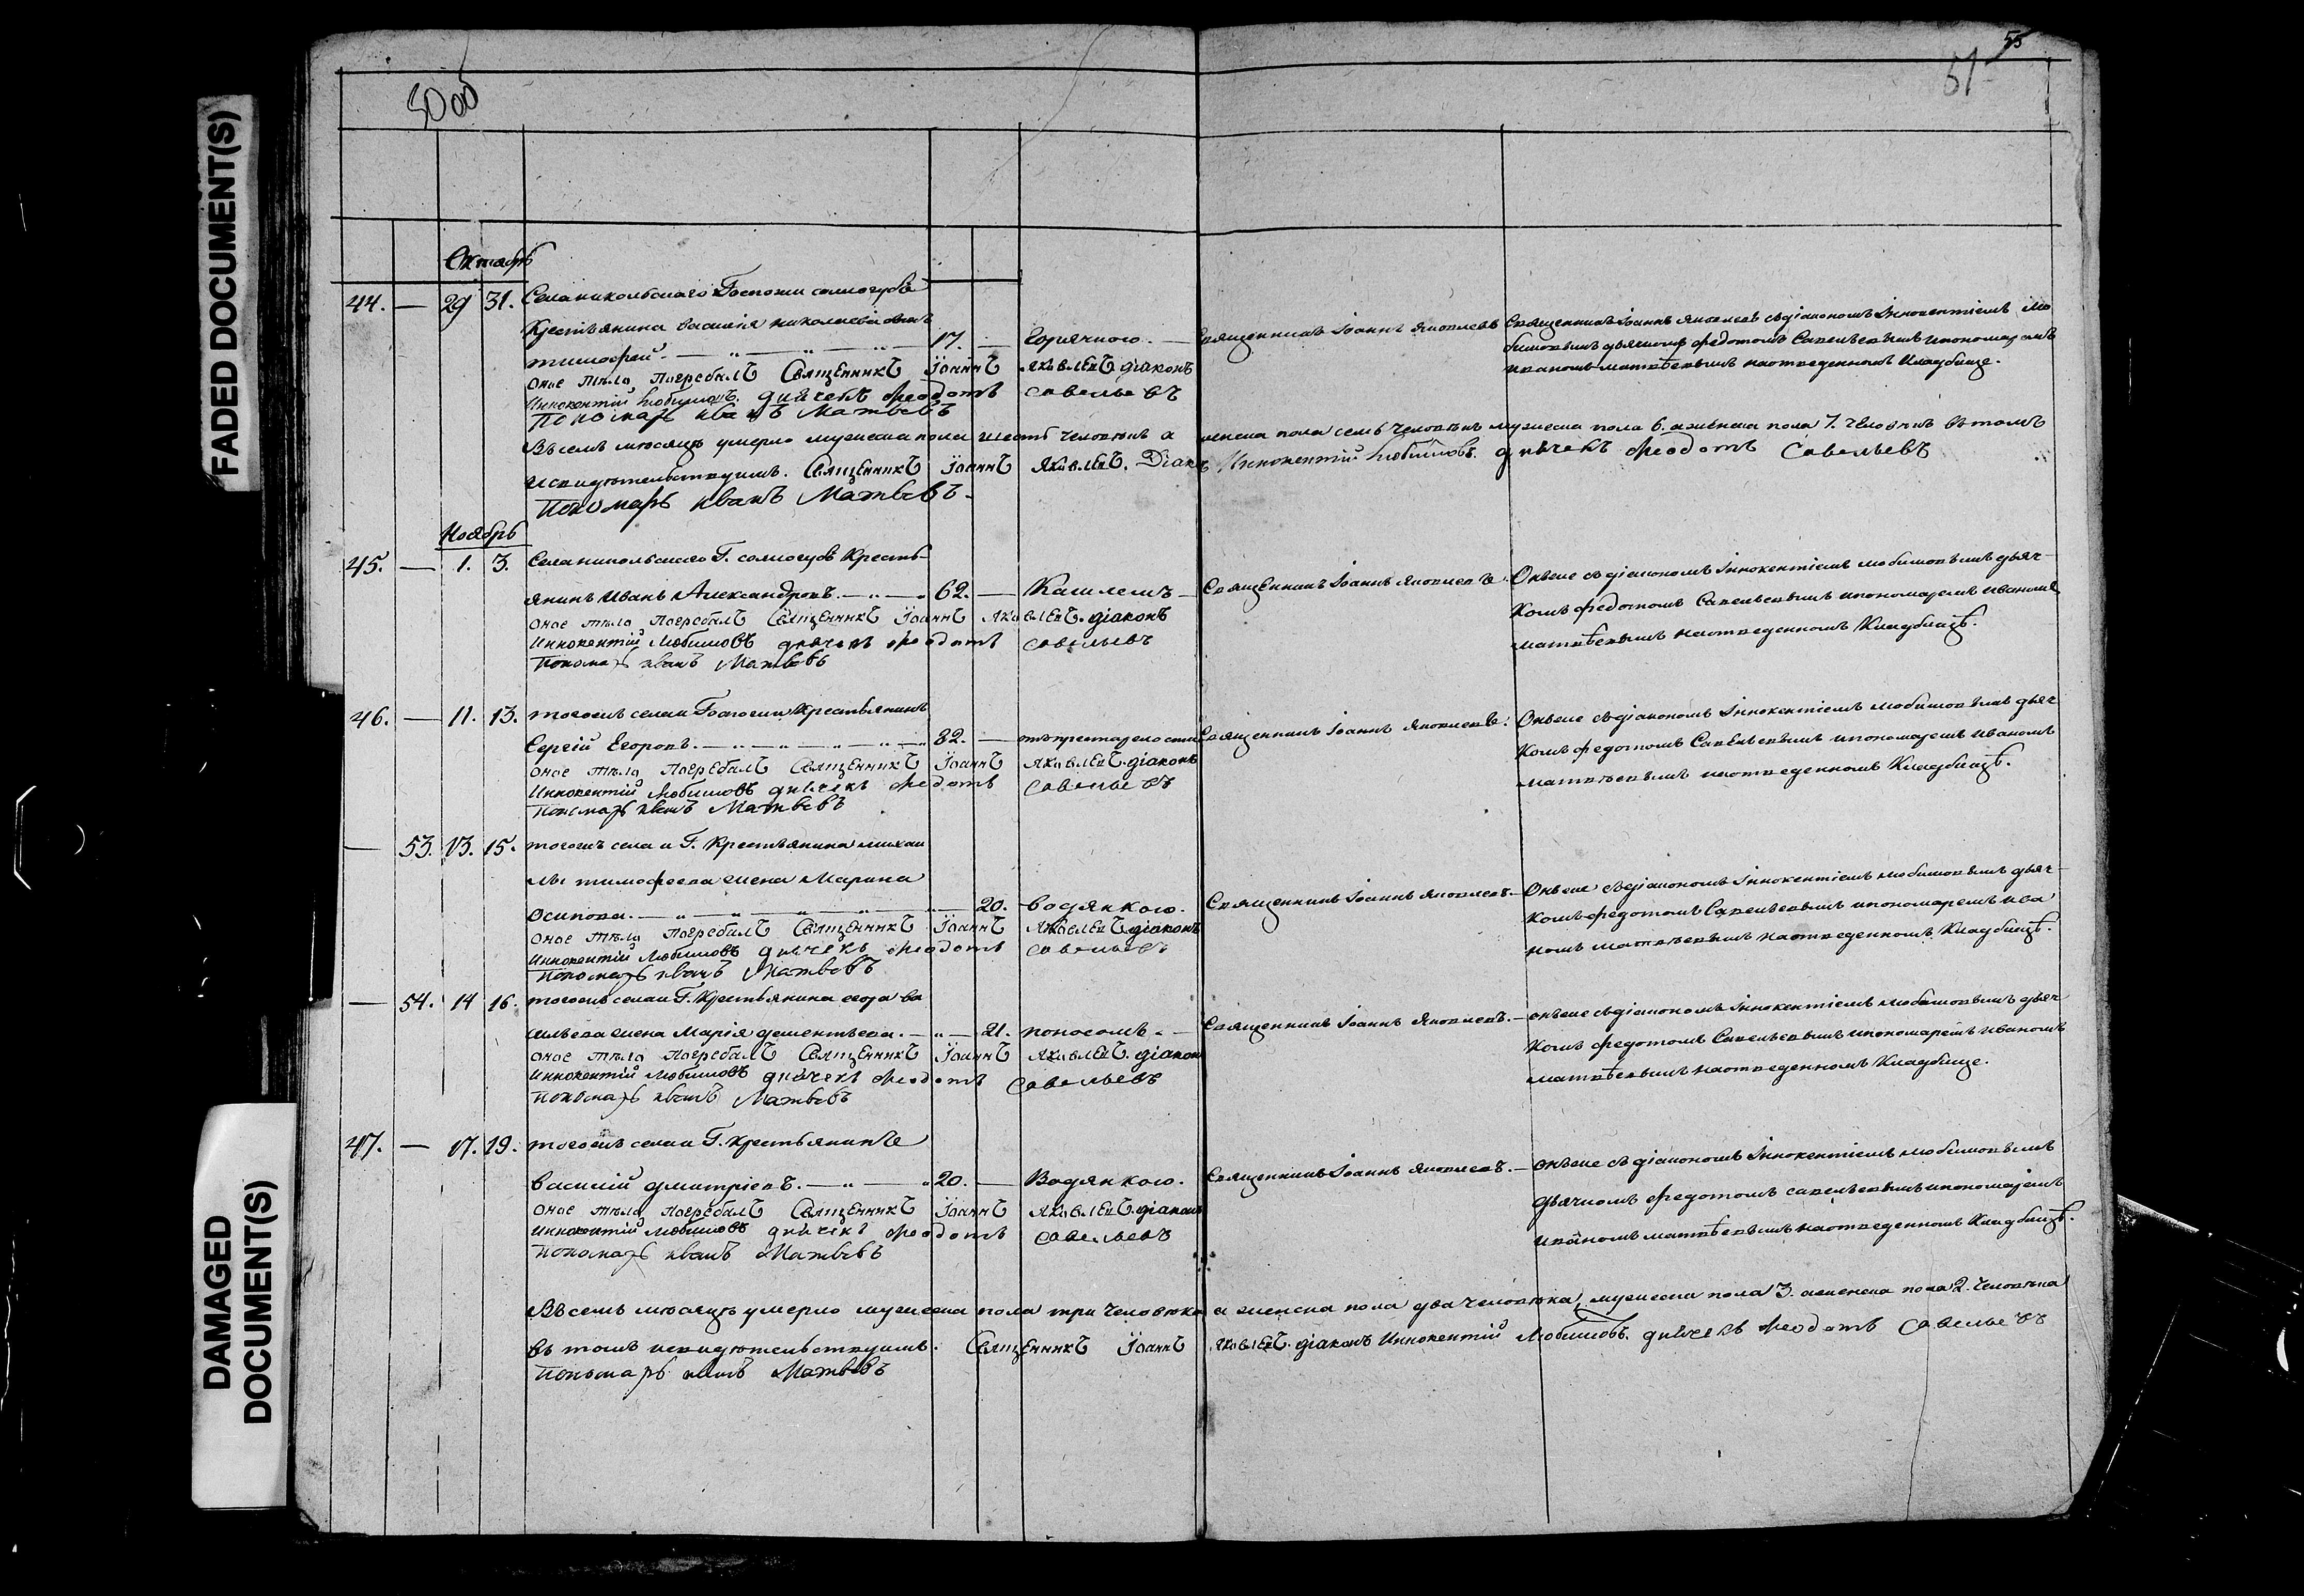 FADED DOCUMENT(S)
DAMAGED
DOCUMENT(S)
55
51
Октябрь
44. — 29 31. Села никольскаго Госпожи сологубъ
Крестьянина василія николаева сынъ
тимофей. — 17. — Горячкою. — Священникъ Іоаннъ Яковлевъ
Священникъ Іоаннъ Яковлевъ съ діакономъ Іннокентіемъ лю
бимовымъ дьячкомъ федотомъ Савельевымъ и пономаремъ
иваномъ матвѣевымъ на отведенномъ кладбище.
оное тѣло погребалъ Священникъ Іоаннъ Яковлевъ діаконъ
Иннокентій Любимовъ. дьячекъ Феодотъ Савельевъ
Пономарь Иванъ Матвѣевъ
Въ семъ мѣсяцѣ умерло мужеска пола шесть человѣкъ а женска пола семь человѣкъ мужеска пола 6. а женска пола 7. человѣкъ въ томъ
и свидѣтельствуемъ. Священникъ Іоаннъ Яковлевъ. Діаконъ Иннокентій Любимовъ. дьячекъ Феодотъ Савельевъ
Пономарь Иванъ Матвѣевъ.
Ноябрь
45. — 1. 3. Села никольскаго Г. сологубъ Кресть-
янинъ Иванъ Александровъ. — 62. — Кашлемъ — Священникъ Іоаннъ Яковлевъ.
Онъ же съ діакономъ Іннокентіемъ любимовымъ дьяч-
комъ федотомъ Савельевымъ и пономаремъ иваномъ
матвѣевымъ на отведенномъ Кладбищѣ.
оное тѣло погребалъ Священникъ Іоаннъ Яковлевъ. діаконъ
Иннокентій Любимовъ дьячекъ Феодотъ Савельевъ
Пономарь Иванъ Матвѣевъ
46. — 11. 13. тогожъ села и Госпожи Крестьянинъ
Сергій Егоровъ. — 82. — отъ престарелости Священникъ Іоаннъ Яковлевъ.
Онъ же съ діакономъ Іннокентіемъ любимовымъ дьяч
комъ федотомъ Савельевымъ и пономаремъ иваномъ
матвѣевымъ на отведенномъ Кладбищѣ.
оное тѣло погребалъ Священникъ Іоаннъ Яковлевъ. діаконъ
Иннокентій Любимовъ дьячекъ Феодотъ Савельевъ
Пономарь Иванъ Матвѣевъ
— 53. 13. 15. тогожъ села и Г. Крестьянина михаи
лы тимофеева жена Марина
Осипова. — 20. водянкою. Священникъ Іоаннъ Яковлевъ. —
Онъ же съ діакономъ Іннокентіемъ любимовымъ дьяч-
комъ федотомъ Савельевымъ и пономаремъ ива
номъ матвѣевымъ на отведенномъ Кладбищѣ.
оное тѣло погребалъ Священникъ Іоаннъ Яковлевъ діаконъ
Иннокентій Любимовъ дьячекъ Феодотъ Савельевъ
Пономарь Иванъ Матвѣевъ
— 54. 14 16. тогожъ села и Г. Крестьянина егора ва
сильева жена Марія дементьева. — 21. поносомъ. — Священникъ Іоаннъ Яковлевъ. —
онъ же съ діакономъ Іннокентіемъ любимовымъ дьяч
комъ федотомъ Савельевымъ и пономаремъ иваномъ
матвѣевымъ на отведенномъ Кладбище.
оное тѣло погребалъ Священникъ Іоаннъ Яковлевъ. діаконъ
Иннокентій Любимовъ дьячекъ Феодотъ Савельевъ
Пономарь Иванъ Матвѣевъ
47. — 17. 19. тогожъ села и Г. крестьянинъ
василій дмитріевъ. — 20. — Водянкою. Священникъ Іоаннъ Яковлевъ. —
онъ же съ діакономъ Іннокентіемъ любимовымъ
дьячкомъ федотомъ савельевымъ и пономаремъ
иваномъ матвѣевымъ на отведенномъ Кладбищѣ.
оное тѣло погребалъ Священникъ Іоаннъ Яковлевъ. діаконъ
Иннокентій Любимовъ дьячекъ Феодотъ Савельевъ
Пономарь Иванъ Матвѣевъ
Въ семъ мѣсяцѣ умерло мужеска пола три человѣка а женска пола два человѣка, мужеска пола 3. а женска пола 2. человѣка
въ томъ и свидѣтельствуемъ. Священникъ Іоаннъ Яковлевъ. діаконъ Иннокентій Любимовъ. дьячекъ Феодотъ Савельевъ
Пономарь Иванъ Матвѣевъ